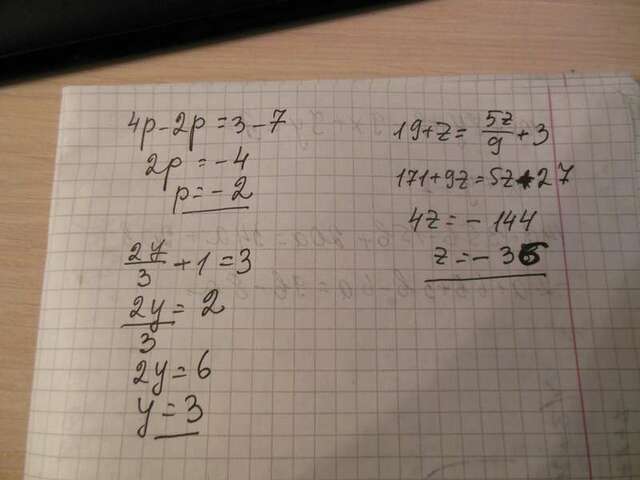 4p-2p=3-7
2p=-4
p=-2
2y/3+1=3
2y/3=2
2y=6
y=3
19+z=5z/9+3
171+9z=5z+27
4z=-144
z=-36